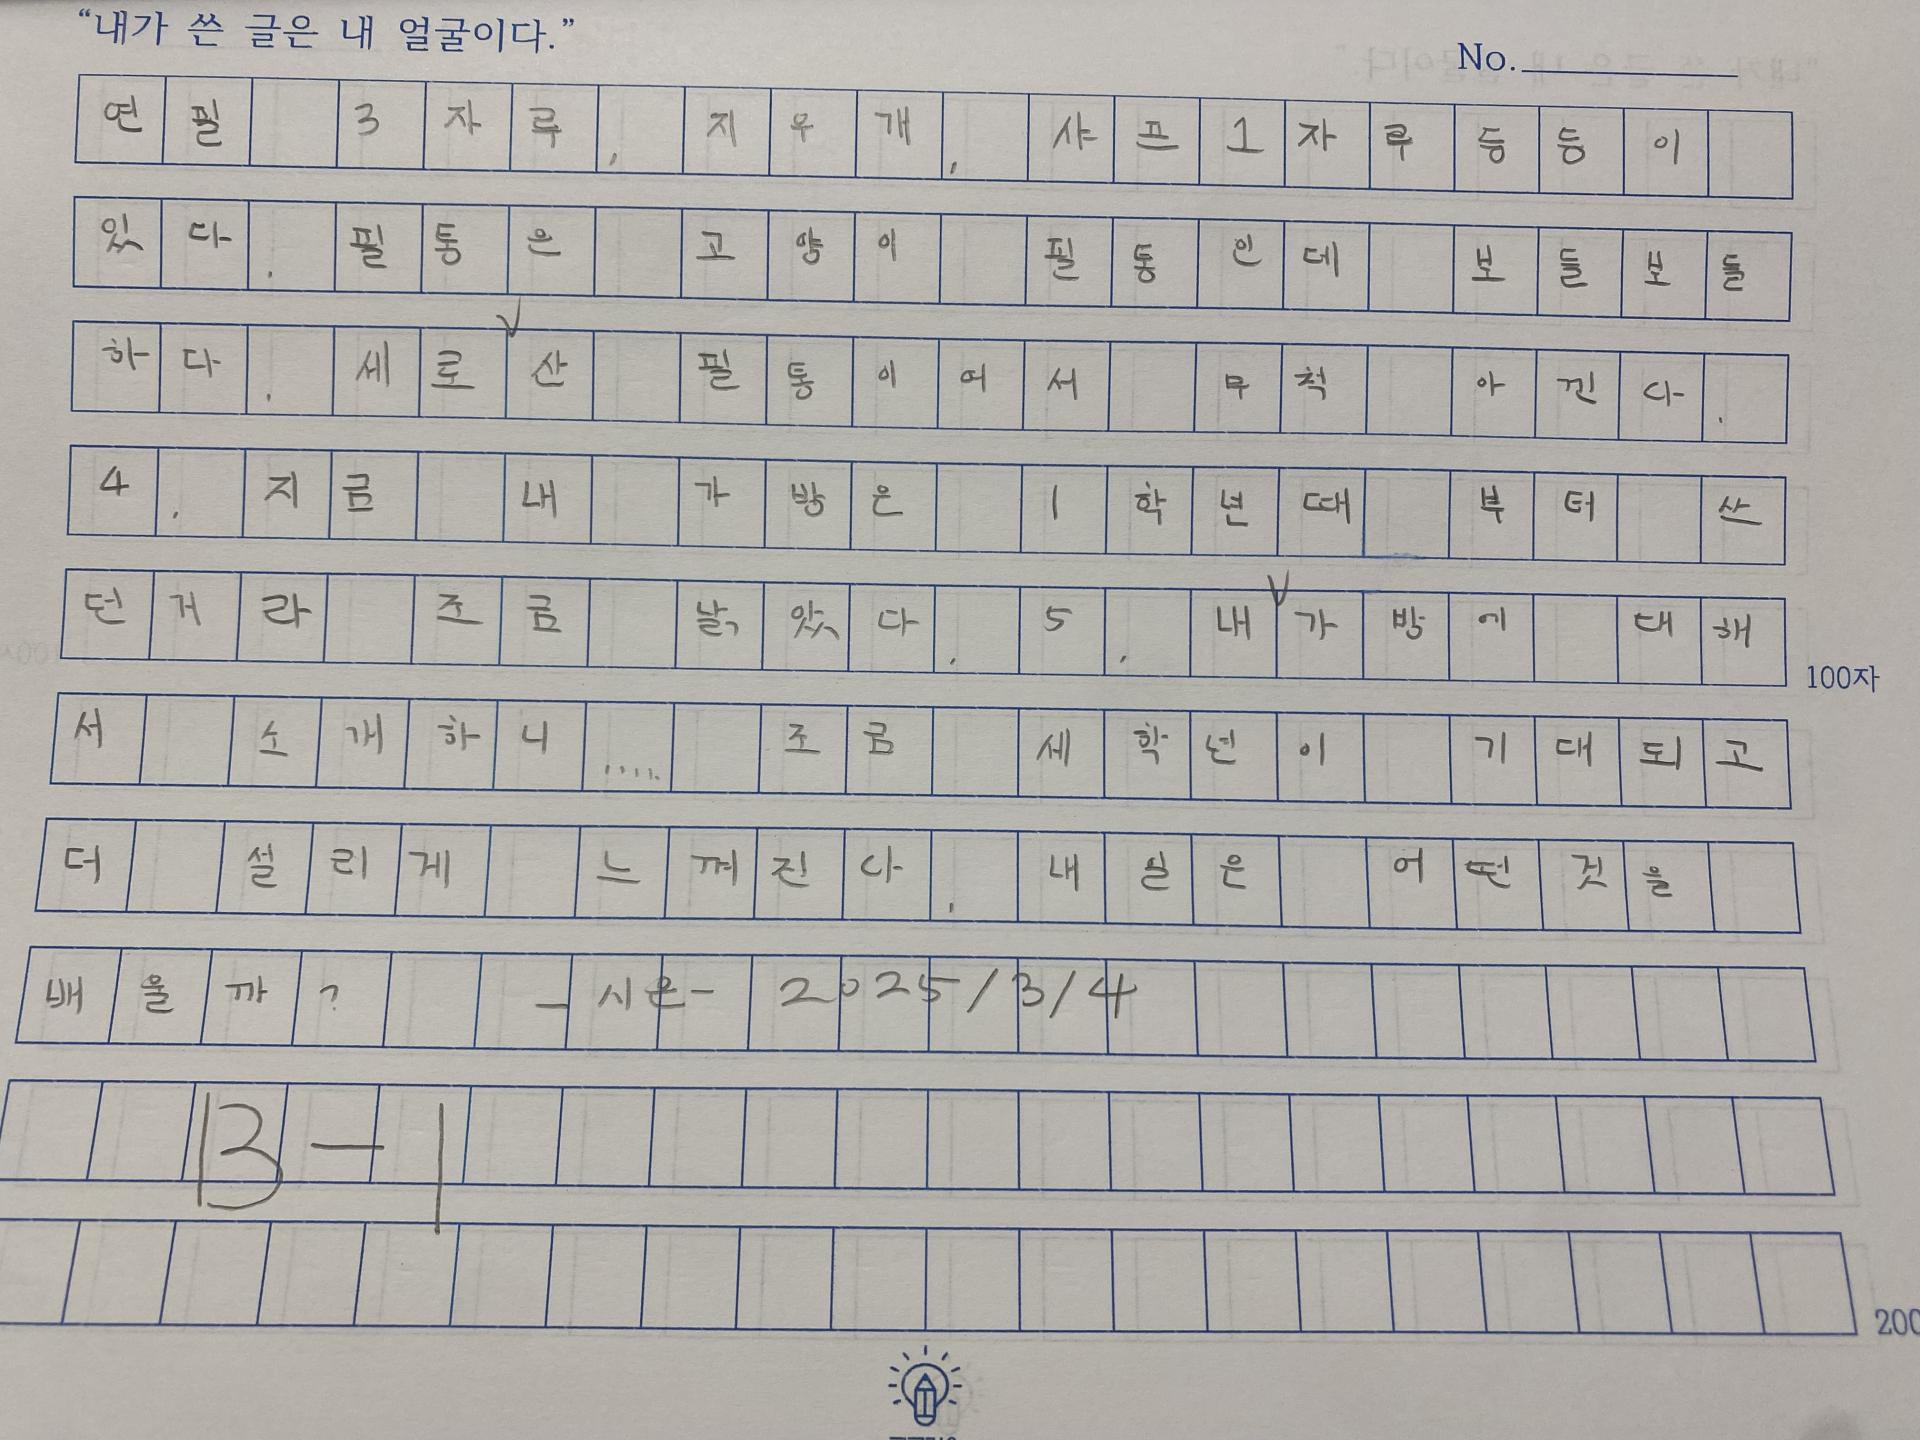 “내가 쓴 글은 내 얼굴이다.”
No.
연필 3자루, 지우개, 샤프1자루등등이
있다. 필통은 고양이 필통인데 보들보들
하다. 세로∨산 필통이어서 무척 아낀다.
4. 지금 내 가방은 1학년때 부터 산
던거라 조금 낡았다. 5. 내∨가방에 대해
100자
서 소개하니..... 조금 세학년이 기대되고
더 설리게 느껴진다. 내일은 어떤것을
배울까? -시은- 2025/3/4
13-1
200